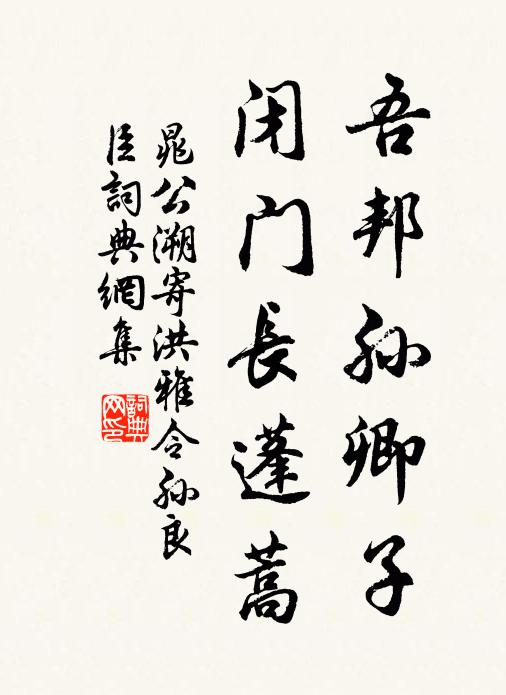 吾邦孙卿子
闭门長蓬蒿
晁公溯寄洪雅令孙良
臣詞典網集
詞典網印